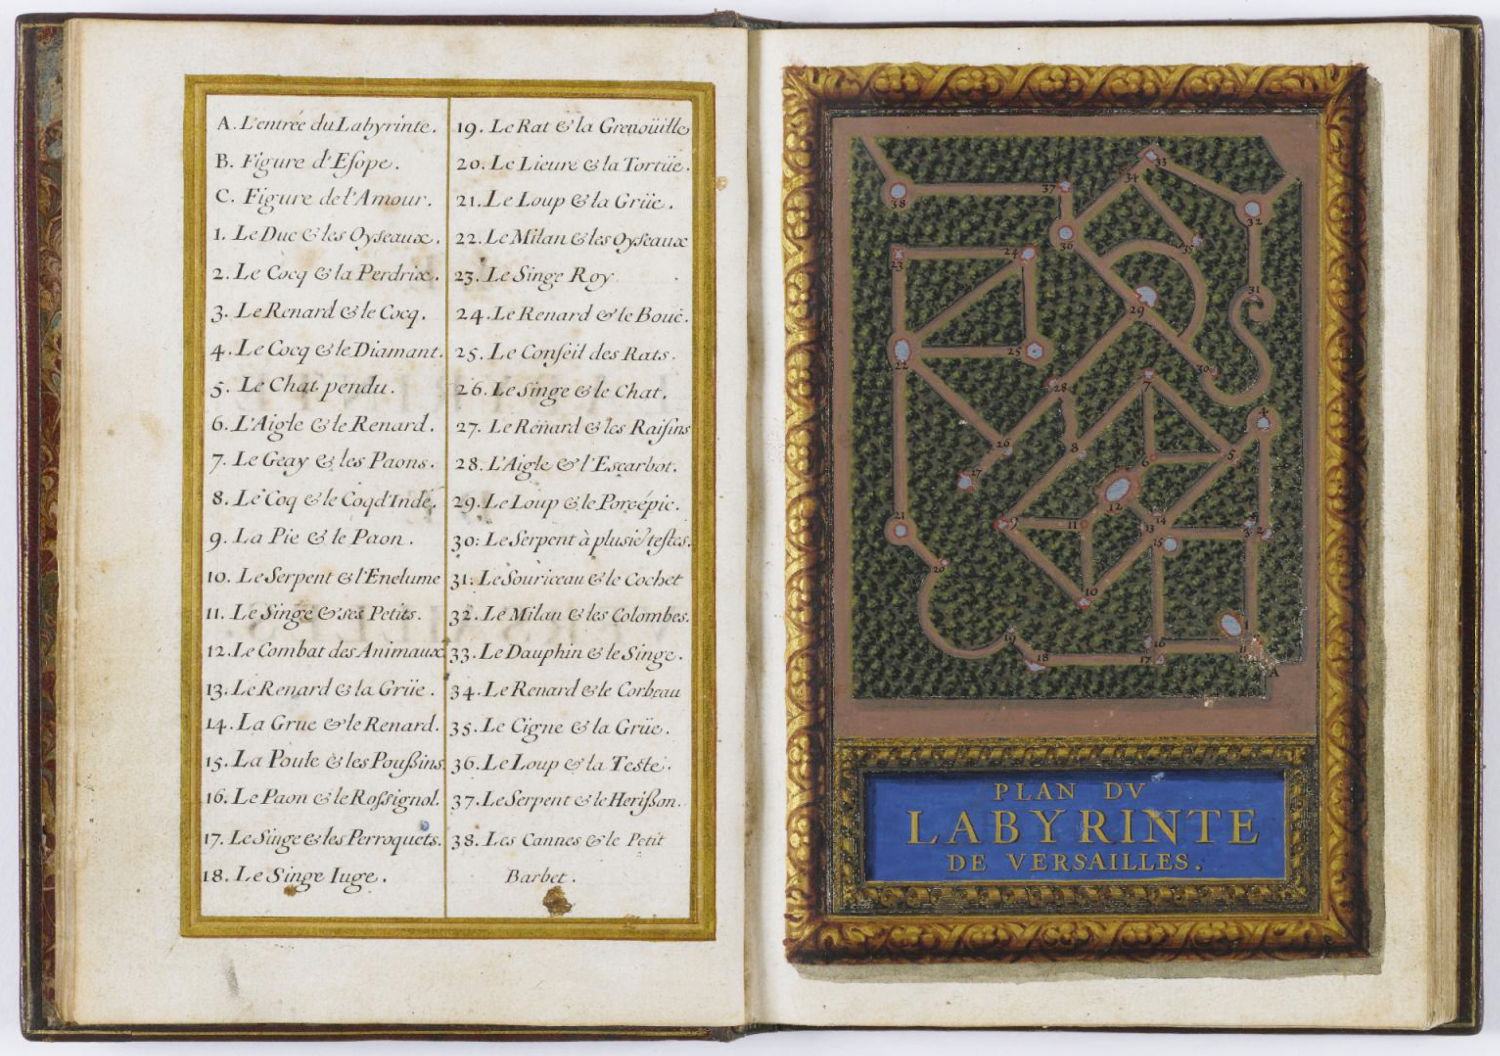 A. L'entrée du Labyrinte.
B. Figure d'Esope.
C. Figure de l'Amour.
1. Le Duc & les Oyseaux.
2. Le Cocq & la Perdrix.
3. Le Renard & le Cocq.
4. Le Cocq & le Diamant.
5. Le Chat pendu.
6. L'Aigle & le Renard.
7. Le Geay & les Paons.
8. Le Coq & le Coq d'Inde.
9. La Pie & le Paon.
10. Le Serpent & l'Enclume
11. Le Singe & ses Petits.
12. Le Combat des Animaux
13. Le Renard & la Grüe.
14. La Grue & le Renard.
15. La Poule & les Poussins
16. Le Paon & le Rossignol.
17. Le Singe & les Perroquets.
18. Le Singe Iuge.
19. Le Rat & la Grenoüille
20. Le Lieure & la Tortüe.
21. Le Loup & la Grüe.
22. Le Milan & les Oyseaux
23. Le Singe Roy
24. Le Renard & le Bouc.
25. Le Conseil des Rats.
26. Le Singe & le Chat.
27. Le Renard & les Raisins
28. L'Aigle & l'Escarbot.
29. Le Loup & le Porcépic.
30. Le Serpent à plusie.rs testes.
31. Le Souriceau & le Cochet
32. Le Milan & les Colombes.
33. Le Dauphin & le Singe.
34. Le Renard & le Corbeau
35. Le Cigne & la Grüe.
36. Le Loup & la Teste.
37. Le Serpent & le Herisson.
38. Les Cannes & le Petit
Barbet.
33
34
37
38
32
35
36
23
24
31
29
22
25
30
7
28
4
26
8
5
6
27
12
21
9
11
14
13
3
2
15
20
10
19
16
18
17
A
PLAN DV
LABYRINTE
DE VERSAILLES.